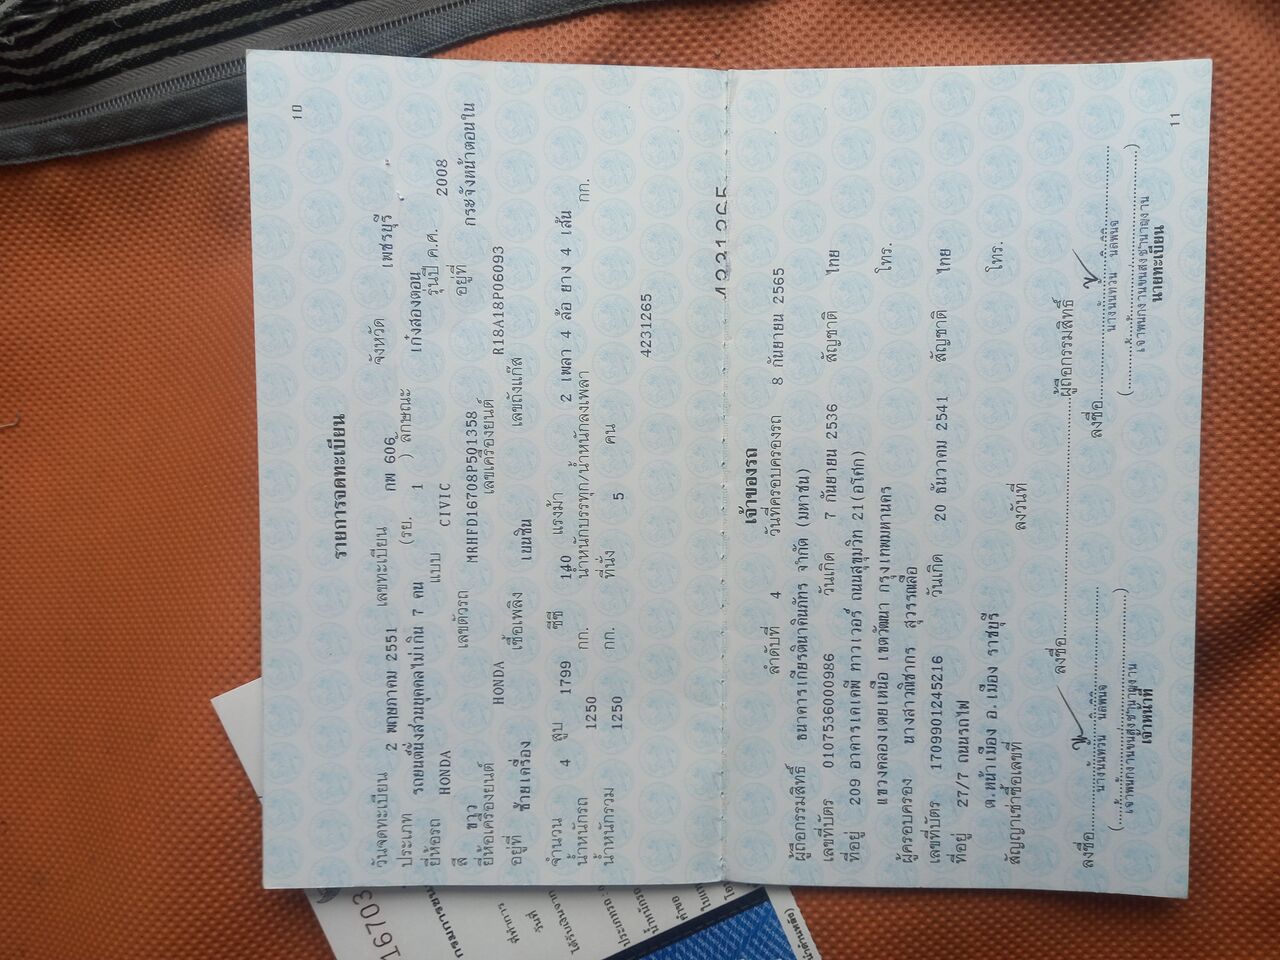 10
รายการจดทะเบียน
วันจดทะเบียน 2 พฤษภาคม 2551 เลขทะเบียน กพ 606 จังหวัด เพชรบุรี
ประเภท รถยนต์นั่งส่วนบุคคลไม่เกิน 7 คน (รย. 1 ) ลักษณะ เก๋งสองตอน
ยี่ห้อรถ HONDA แบบ CIVIC รุ่นปี ค.ศ. 2008
สี ขาว เลขตัวรถ MRHFD16708P501358 อยู่ที่ กระจังหน้าตอนใน
ยี่ห้อเครื่องยนต์ HONDA เลขเครื่องยนต์ R18A18P06093
อยู่ที่ ซ้ายเครื่อง เชื้อเพลิง เบนซิน เลขถังแก๊ส
จำนวน 4 สูบ 1799 ซีซี 140 แรงม้า 2 เพลา 4 ล้อ ยาง 4 เส้น
น้ำหนักรถ 1250 กก. น้ำหนักบรรทุก/น้ำหนักลงเพลา กก.
น้ำหนักรวม 1250 กก. ที่นั่ง 5 คน
4231265
4231265
เจ้าของรถ
ลำดับที่ 4 วันที่ครอบครองรถ 8 กันยายน 2565
ผู้ถือกรรมสิทธิ์ ธนาคารเกียรตินาคินภัทร จำกัด (มหาชน)
เลขที่บัตร 0107536000986 วันเกิด 7 กันยายน 2536 สัญชาติ ไทย
ที่อยู่ 209 อาคารเคเคพี ทาวเวอร์ ถนนสุขุมวิท 21(อโศก)
แขวงคลองเตยเหนือ เขตวัฒนา กรุงเทพมหานคร โทร.
ผู้ครอบครอง นางสาวณิชากร สุวรรณลือ
เลขที่บัตร 1709901245216 วันเกิด 20 ธันวาคม 2541 สัญชาติ ไทย
ที่อยู่ 27/7 ถนนรถไฟ
ต.หน้าเมือง อ.เมือง ราชบุรี โทร.
สัญญาเช่าซื้อเลขที่ ลงวันที่
ลงชื่อ ผู้ถือกรรมสิทธิ์
ลงชื่อ ลงชื่อ
เจ้าพนักงานขนส่งชำนาญงาน เจ้าพนักงานขนส่งชำนาญงาน
เจ้าหน้าที่ นายทะเบียน
11
16703